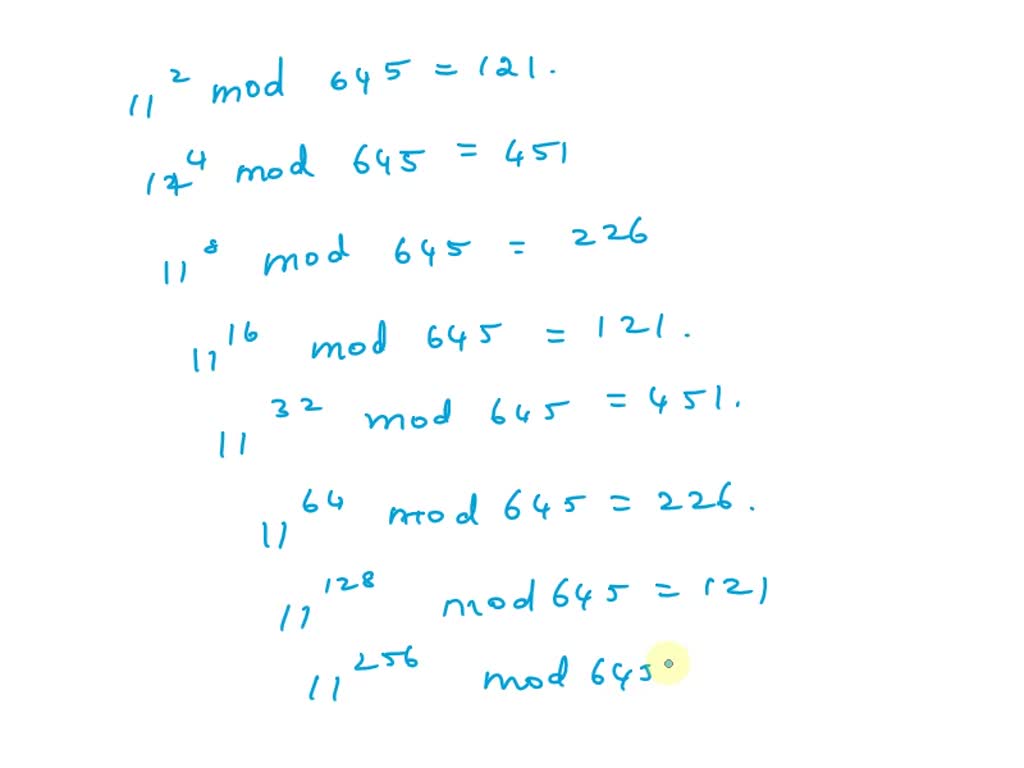 11² mod 645 = 121.
11⁴ mod 645 = 451
11⁸ mod 645 = 226
11¹⁶ mod 645 = 121.
11³² mod 645 = 451.
11⁶⁴ mod 645 = 226.
11¹²⁸ mod 645 = 121
11²⁵⁶ mod 645